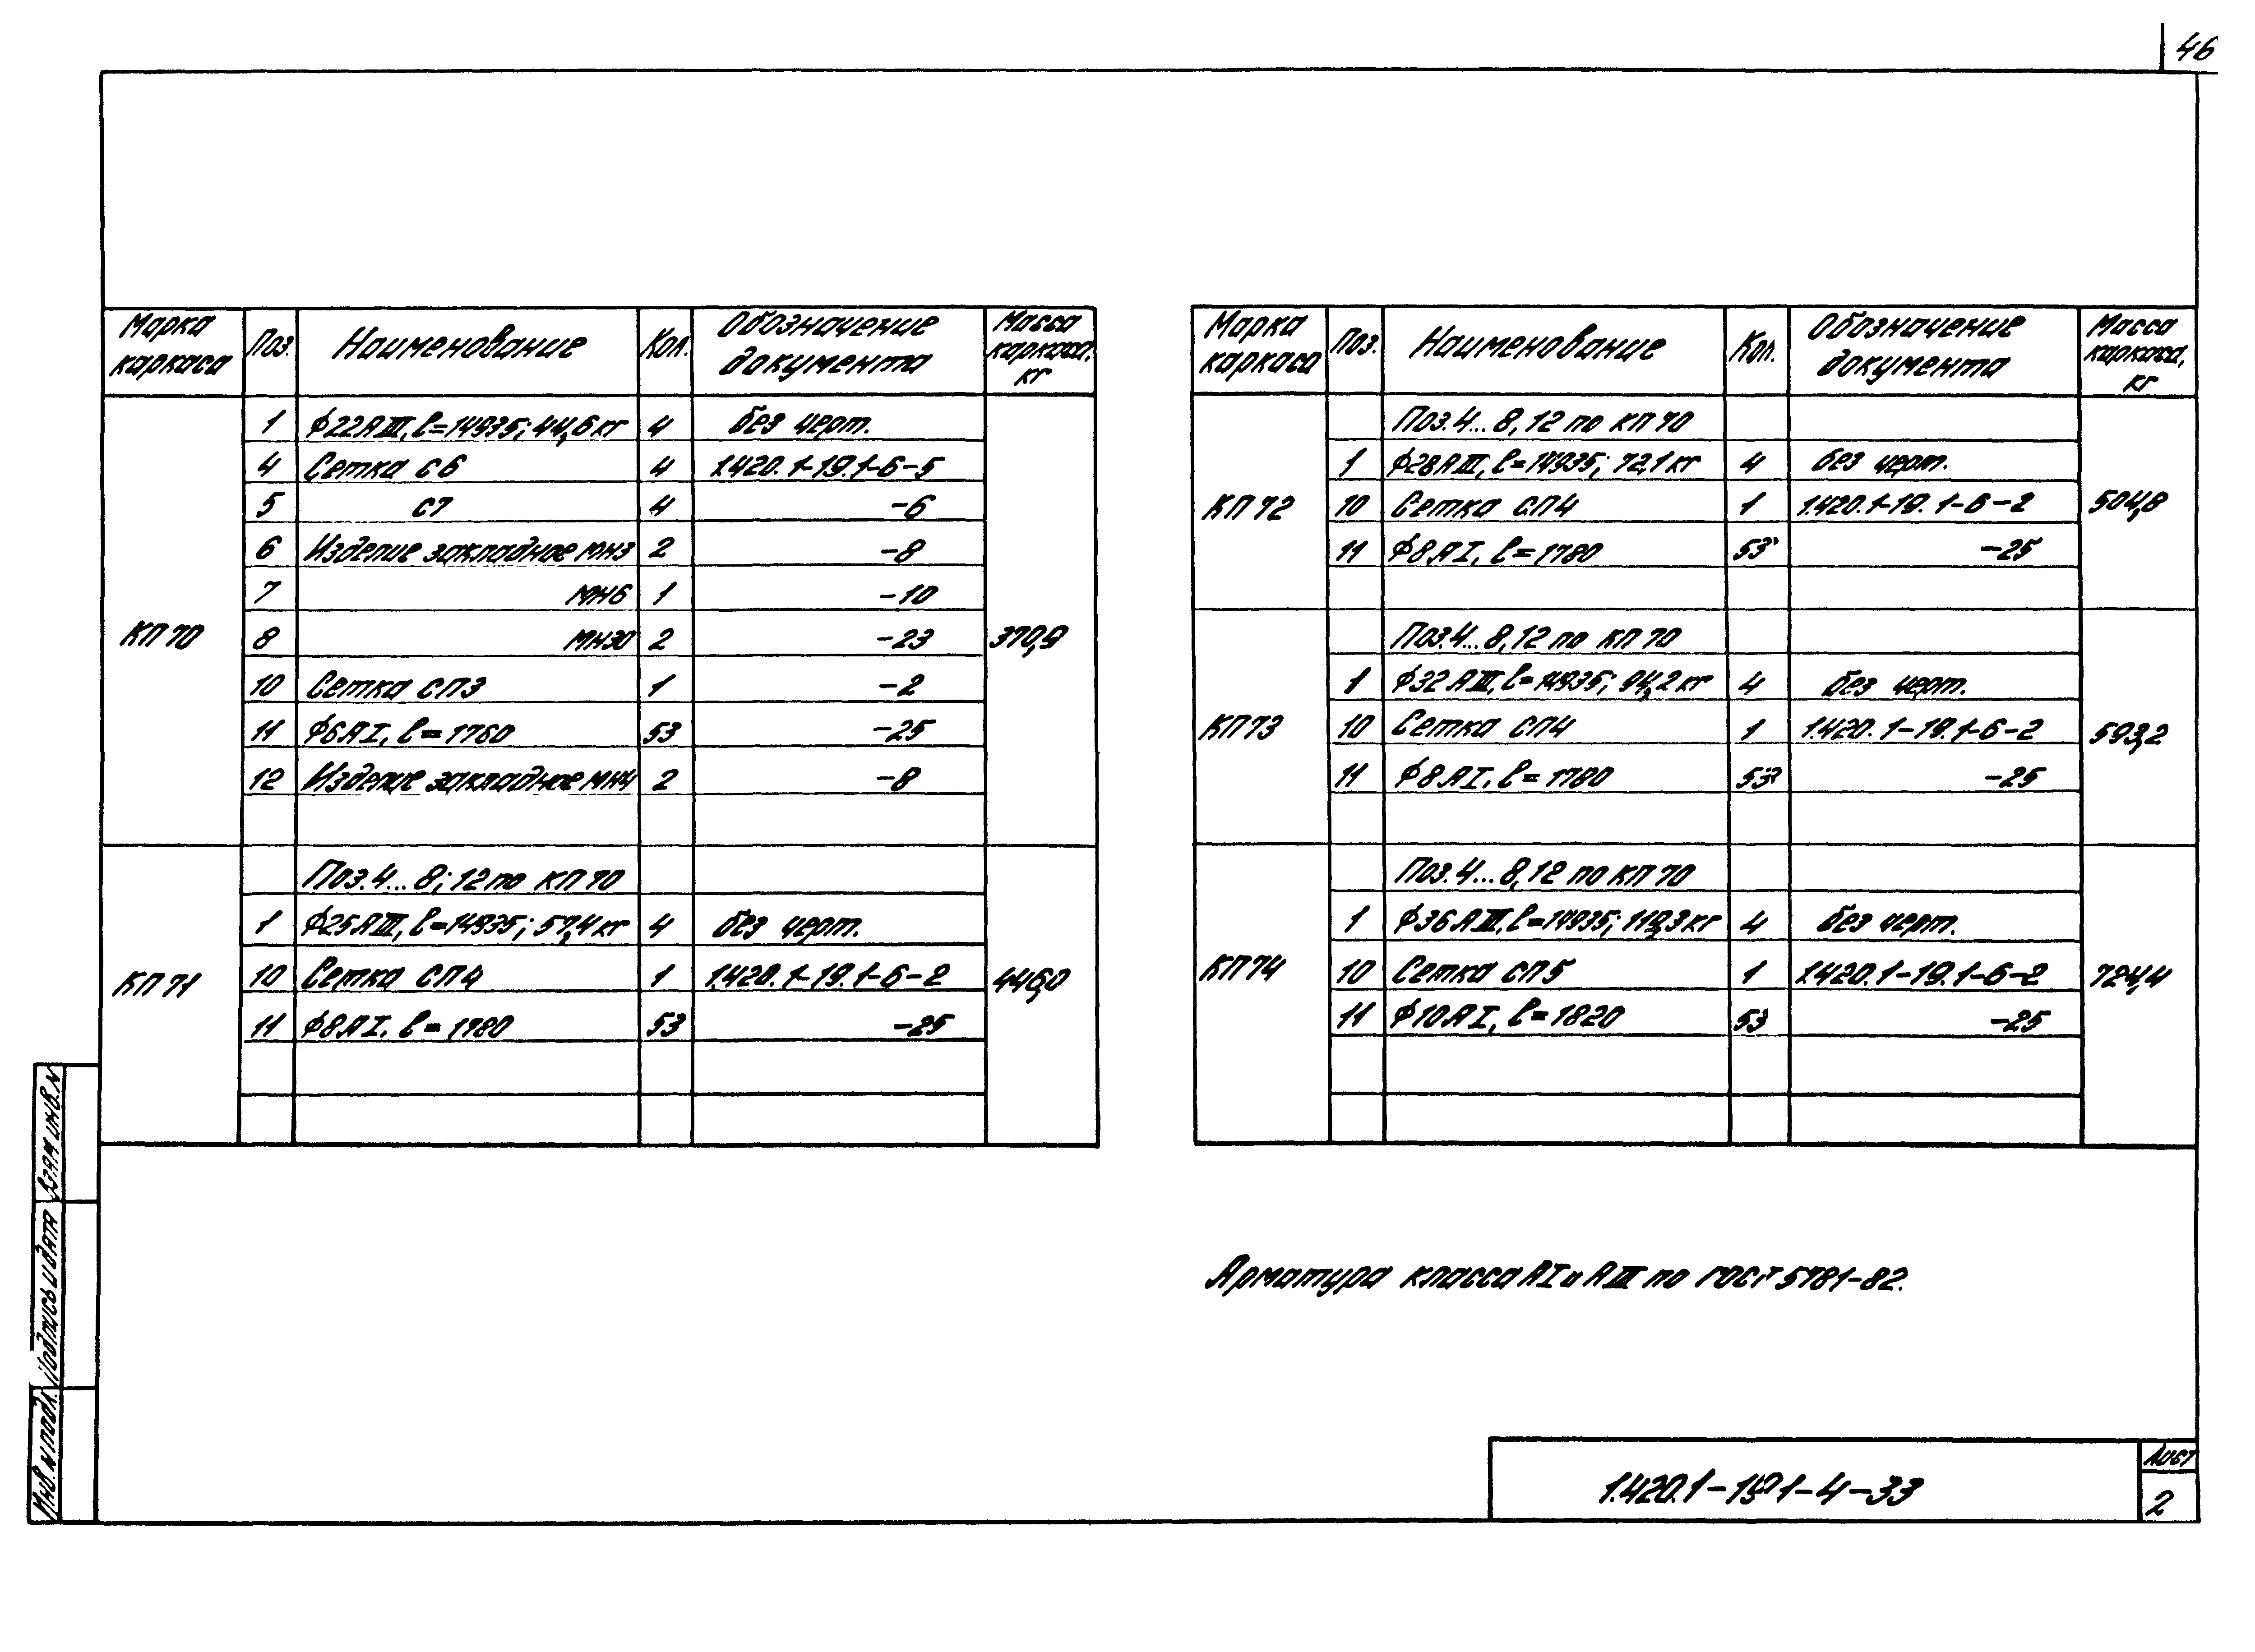 46
Марка каркаса Поз. Наименование Кол. Обозначение документа Масса каркаса, кг
КП70 370,9
1 Ф22АIII, l=14935; 44,6кг 4 без черт.
4 Сетка С6 4 1.420.1-19.1-6-5
5 С7 4 -6
6 Изделие закладное МН3 2 -8
7 МН6 1 -10
8 МН30 2 -23
10 Сетка СП3 1 -2
11 Ф6АI, l=1760 53 -25
12 Изделие закладное МН4 2 -8
КП71 446,0
Поз.4...8; 12 по КП70
1 Ф25АIII, l=14935; 57,4кг 4 без черт.
10 Сетка СП4 1 1.420.1-19.1-6-2
11 Ф8АI, l=1780 53 -25
Марка каркаса Поз. Наименование Кол. Обозначение документа Масса каркаса, кг
КП72 504,8
Поз.4...8, 12 по КП70
1 Ф28АIII, l=14935; 72,1кг 4 без черт.
10 Сетка СП4 1 1.420.1-19.1-6-2
11 Ф8АI, l=1780 53 -25
КП73 593,2
Поз.4...8, 12 по КП70
1 Ф32АIII, l=14935; 94,2кг 4 без черт.
10 Сетка СП4 1 1.420.1-19.1-6-2
11 Ф8АI, l=1780 53 -25
КП74 724,4
Поз.4...8, 12 по КП70
1 Ф36АIII, l=14935; 119,3кг 4 без черт.
10 Сетка СП5 1 1.420.1-19.1-6-2
11 Ф10АI, l=1820 53 -25
Арматура класса АI и АIII по ГОСТ 5781-82.
Взам инв. N
Подпись и дата
Инв. N подл.
1.420.1-19.1-4-33
Лист
2